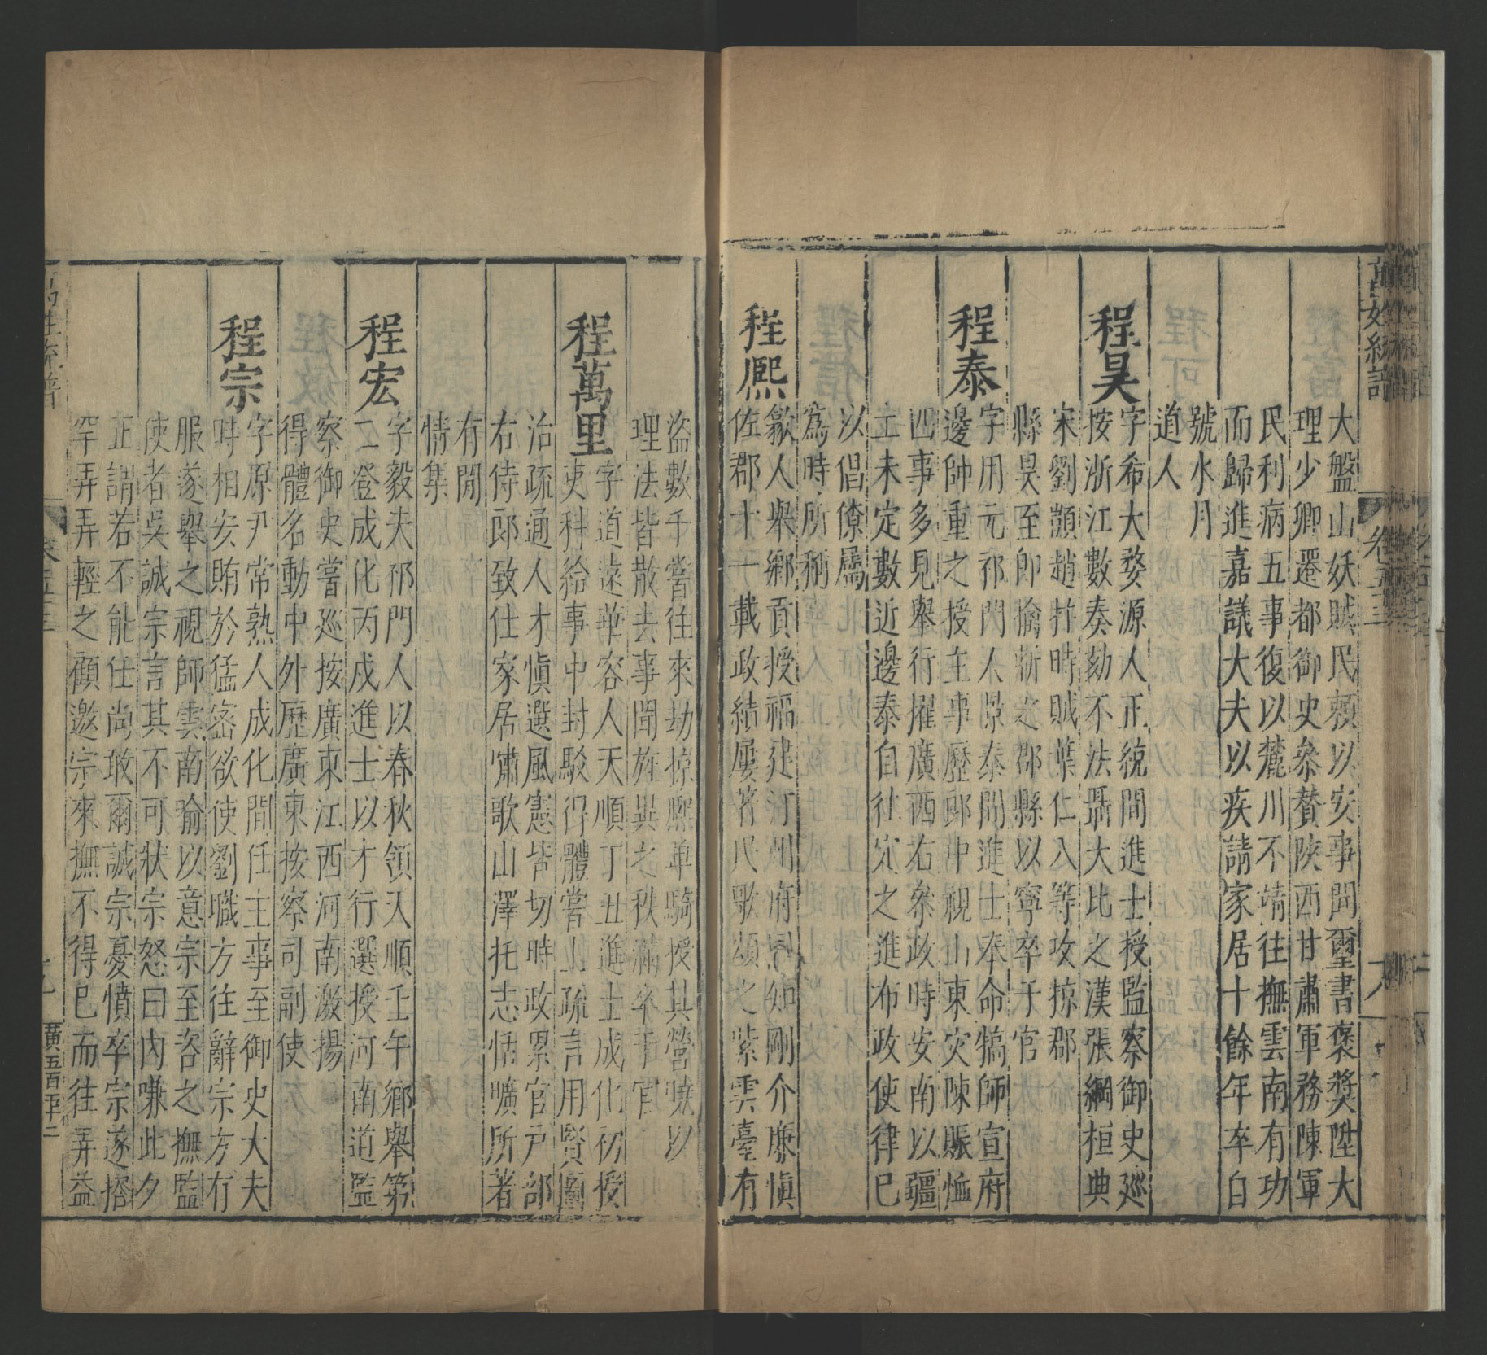 萬姓統譜
卷五十三
大盤山妖賊民賴以安事聞璽書褒獎陞大
理少卿遷都御史叅贊陝西甘肅軍務陳軍
民利病五事復以麓川不靖往撫雲南有功
而歸進嘉議大夫以疾請家居十餘年卒自
號水月
道人
程昊
字希大婺源人正統間進士授監察御史巡
按浙江數奏劾不法聶大比之漢張綱拒典
宋劉顥趙拄時賊葉仁入等攻掠郡
縣昊至即擒斬之郡縣以寧卒于官
程泰
字用元祁門人景泰間進士奉命犒師宣府
邊帥重之授主事歷郎中視山東災陳賑恤
四事多見舉行擢廣西右叅政時安南以疆
土未定數近邊泰自往定之進布政使律已
以倡僚屬
爲時所稱
程熈
歙人舉鄉貢授福建汀州府同知剛介廉愼
佐郡十一載政結屢著民歌頌之紫雲臺有
盜數千嘗往來劫掠熈單騎授其營曉以
理法皆散去事聞旌異之秩滿卒于官
程萬里
字道遠華容人天順丁丑進士成化初授
吏科給事中封駁得體嘗上疏言用賢圖
治疏通人才愼選風憲皆切時政累官戸部
右侍郎致仕家居嘯歌山澤托志恬曠所著
有閒
情集
程宏
字毅夫祁門人以春秋領天順壬午鄉舉第
二登成化丙戌進士以才行選授河南道監
察御史嘗巡按廣東江西河南激揚
得體名動中外歷廣東按察司副使
程宗
字原尹常熟人成化間任主事至御史大夫
時相安賄於猛密欲使劉職方往辭宗方有
服遂舉之視師雲南喻以意宗至咨之撫監
使者吳誠宗言其不可狀宗怒曰内嗛此夕
正謂若不能任尚敢爾誠宗憂憤卒宗遂搭
罕弄弄輕之傾邀宗來撫不得已而往弄益
萬姓統譜
卷五十三
廣五百平二